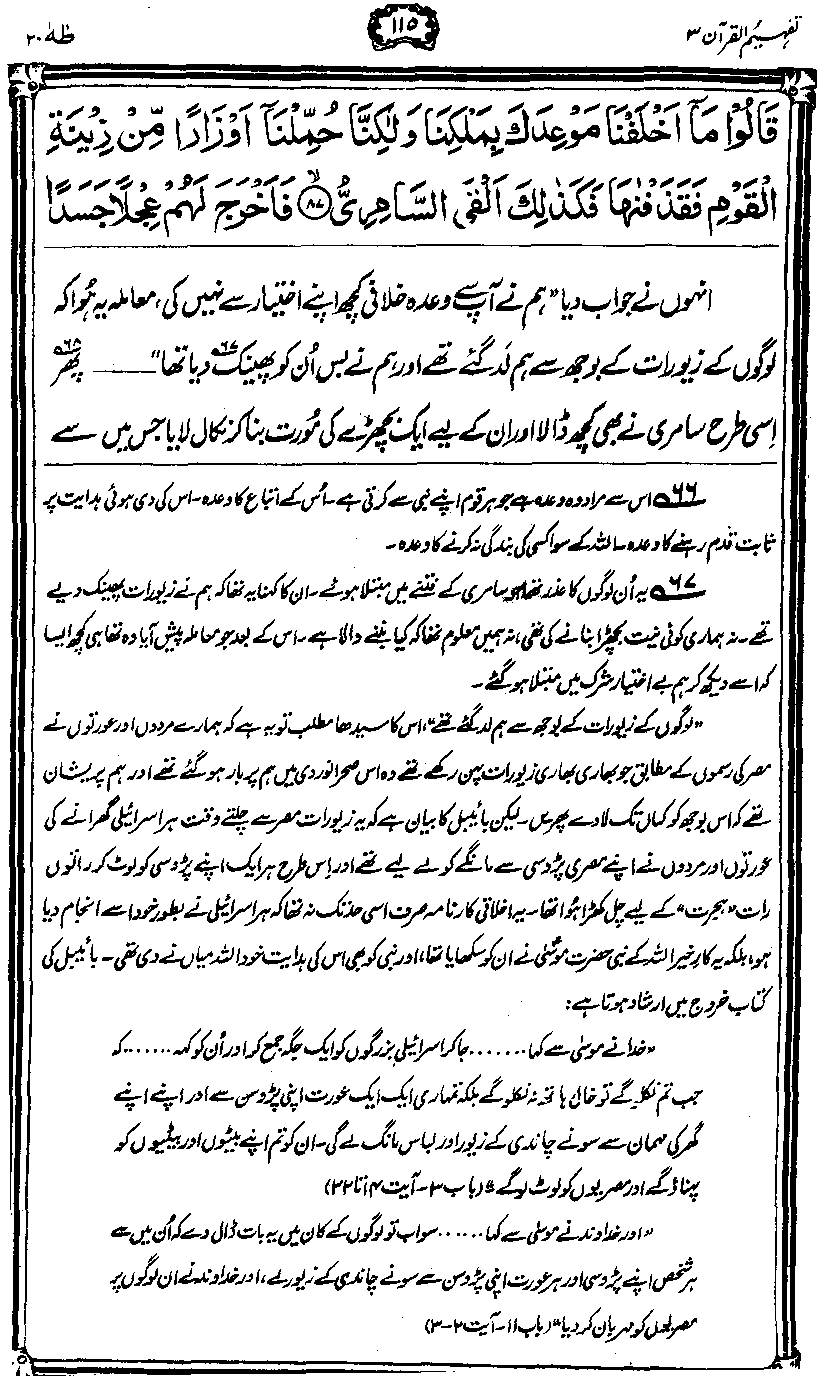 تفہیم القرآن ۳
۱۱۵
طٰهٰ ۲۰
قَالُوْا مَآ اَخْلَفْنَا مَوْعِدَكَ بِمَلْكِنَا وَلٰكِنَّا حُمِّلْنَآ اَوْزَارًا مِّنْ زِيْنَةِ
الْقَوْمِ فَقَذَفْنٰهَا فَكَذٰلِكَ اَلْقَى السَّامِرِيُّ ۙ﴿۸۷﴾ فَاَخْرَجَ لَهُمْ عِجْلًا جَسَدًا
انہوں نے جواب دیا ”ہم نے آپ سے وعدہ خلافی کچھ اپنے اختیار سے نہیں کی، معاملہ یہ ہُوا کہ
لوگوں کے زیورات کے بوجھ سے ہم لَد گئے تھے اور ہم نے بس اُن کو پھینک ۶۷ دیا تھا“ ـــــ پھر ۶۸
اِسی طرح سامری نے بھی کچھ ڈالا اور ان کے لیے ایک بچھڑے کی مُورت بنا کر نکال لایا جس میں سے
۶۶ اس سے مراد وہ وعدہ ہے جو ہر قوم اپنے نبی سے کرتی ہے۔ اُس کے اتباع کا وعدہ۔ اس کی دی ہوئی ہدایت پر
ثابت قدم رہنے کا وعدہ۔ اللہ کے سوا کسی کی بندگی نہ کرنے کا وعدہ۔
۶۷ یہ اُن لوگوں کا عذر تھا جو سامری کے فتنے میں مبتلا ہوئے۔ ان کا کہنا یہ تھا کہ ہم نے زیورات پھینک دیے
تھے۔ نہ ہماری کوئی نیت بچھڑا بنانے کی تھی، نہ ہمیں معلوم تھا کہ کیا بننے والا ہے۔ اس کے بعد جو معاملہ پیش آیا وہ تھا ہی کچھ ایسا
کہ اسے دیکھ کر ہم بے اختیار شرک میں مبتلا ہو گئے۔
”لوگوں کے زیورات کے بوجھ سے ہم لد گئے تھے“، اس کا سیدھا مطلب تو یہ ہے کہ ہمارے مردوں اور عورتوں نے
مصر کی رسموں کے مطابق جو بھاری بھاری زیورات پہن رکھے تھے وہ اس صحرا نوردی میں ہم پر بار ہو گئے تھے اور ہم پریشان
تھے کہ اس بوجھ کو کہاں تک لادے پھریں۔ لیکن بائیبل کا بیان ہے کہ یہ زیورات مصر سے چلتے وقت ہر اسرائیلی گھرانے کی
عورتوں اور مردوں نے اپنے مصری پڑوسی سے مانگے کو لے لیے تھے اور اِس طرح ہر ایک اپنے پڑوسی کو لوٹ کر راتوں
رات ”ہجرت“ کے لیے چل کھڑا ہُوا تھا۔ یہ اخلاقی کارنامہ صرف اسی حد تک نہ تھا کہ ہر اسرائیلی نے بطور خود اسے انجام دیا
ہو، بلکہ یہ کارِ خیر اللہ کے نبی حضرت موسیٰؑ نے ان کو سکھایا تھا، اور نبی کو بھی اس کی ہدایت خود اللہ میاں نے دی تھی۔ بائیبل کی
کتاب خروج میں ارشاد ہوتا ہے:
”خدا نے موسیٰ سے کہا ........ جا کر اسرائیلی بزرگوں کو ایک جگہ جمع کر اور اُن کو کہہ ........ کہ
جب تم نکلو گے تو خالی ہاتھ نہ نکلو گے بلکہ تمہاری ایک ایک عورت اپنی پڑوسن سے اور اپنے اپنے
گھر کی مہمان سے سونے چاندی کے زیور اور لباس مانگ لے گی۔ ان کو تم اپنے بیٹوں اور بیٹیوں کو
پہناؤ گے اور مصریوں کو لوٹ لو گے“ (باب ۳۔ آیت ۱۴ تا ۲۲)
”اور خداوند نے موسیٰ سے کہا ...... سو اب تو لوگوں کے کان میں یہ بات ڈال دے کہ اُن میں سے
ہر شخص اپنے پڑوسی اور ہر عورت اپنی پڑوسن سے سونے چاندی کے زیور لے، اور خداوند نے ان لوگوں پر
مصریوں کو مہربان کر دیا“ (باب ۱۱۔ آیت ۲-۳)